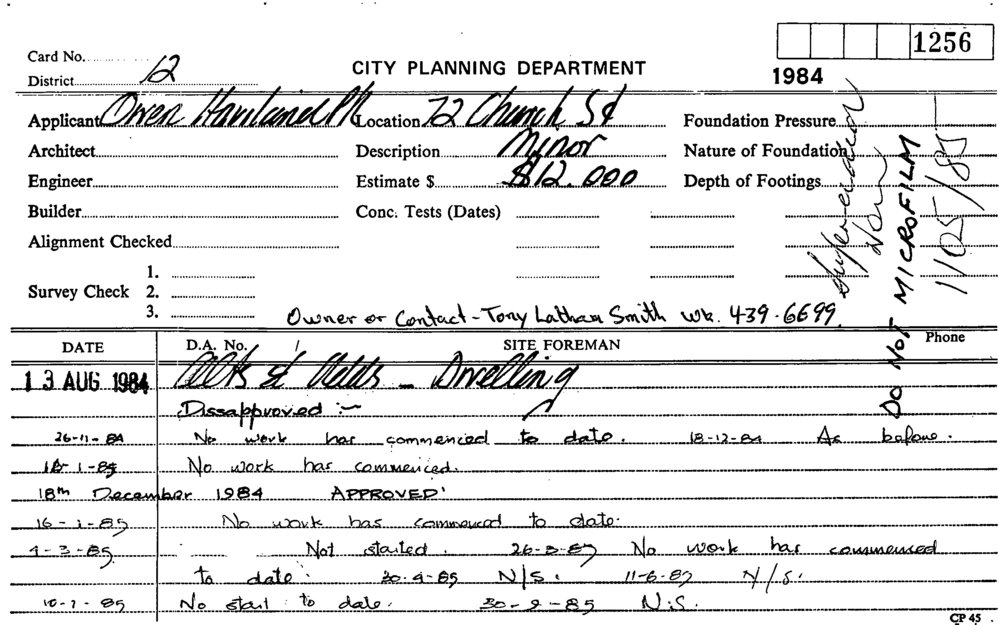 1256
Card No.
District 12
CITY PLANNING DEPARTMENT
1984
Applicant Owen Haviland P/L Location 72 Church St Foundation Pressure
Architect Description Minor Nature of Foundation
Engineer Estimate $ $12.000 Depth of Footings
Builder Conc. Tests (Dates)
Alignment Checked
1.
Survey Check 2.
3.
Owner or Contact - Tony Latham Smith wk. 439-6699.
DO NOT MICROFILM
1105/85
DATE D.A. No. SITE FOREMAN Phone
13 AUG 1984 Alts & Adds - Dwelling
Dissapproved :-
26-11-84 No work has commenced to date. 18-12-84 As before.
1-85 No work has commenced.
18th December 1984 APPROVED'
16-1-85 No work has commenced to date.
4-3-85 Not started. No work has commenced
to date. 30-4-85 N/S. N/S.
10-7-85 No start to date. 30-9-85 N.S.
CP 45